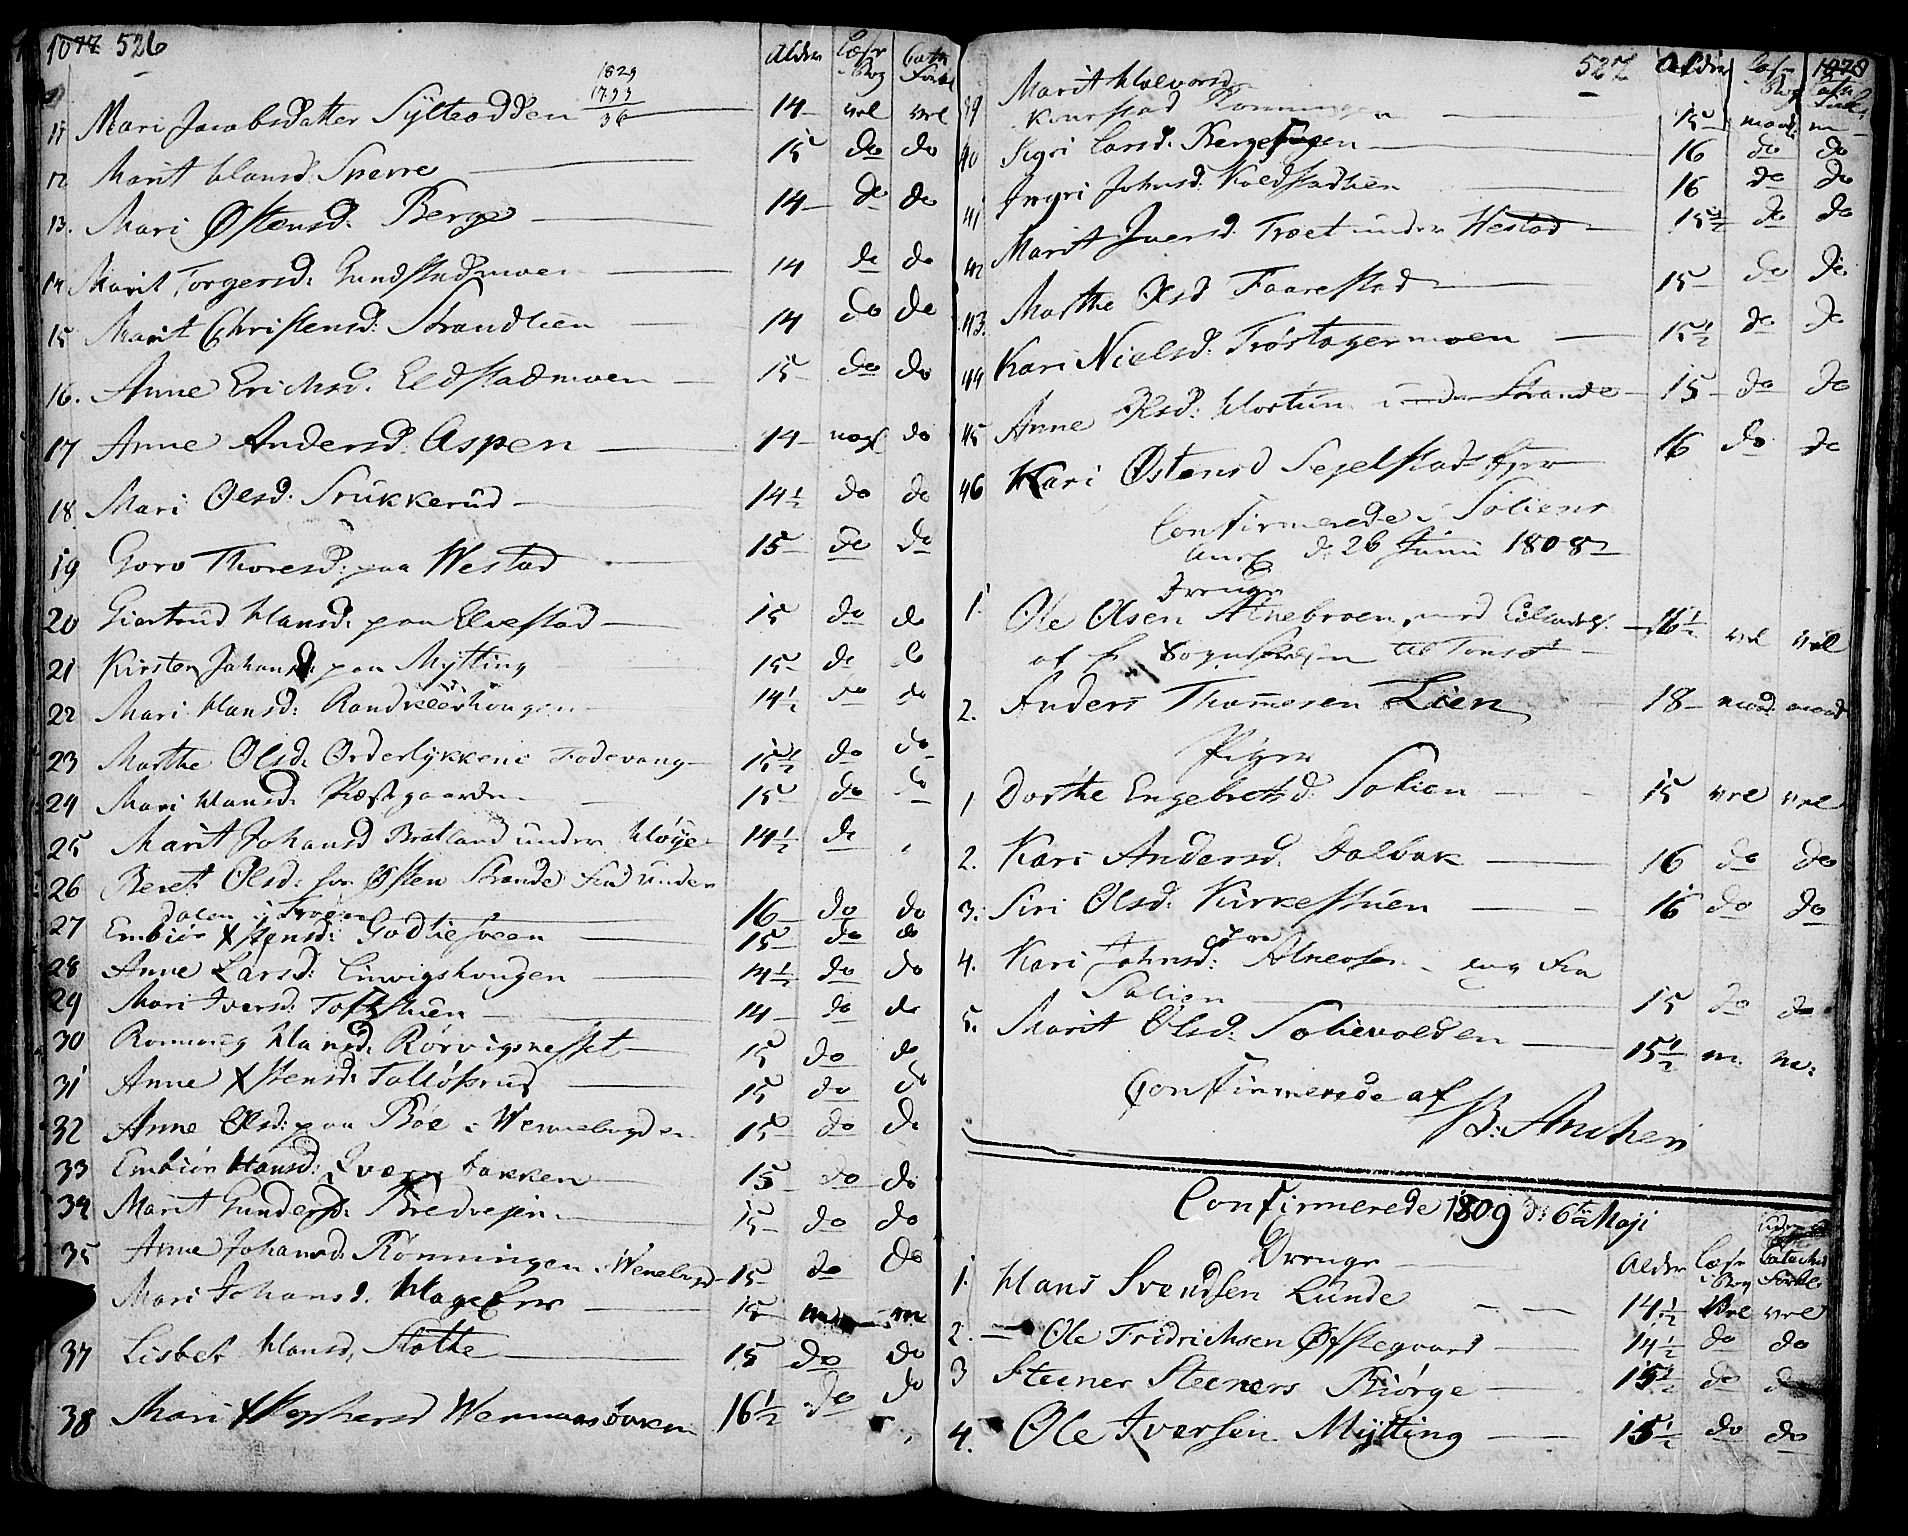 1077 526
Alder Læse Bog Cate Forkl.
1829
1793
36
11 Mari Jacobsdatter Sylteodden 14 vel vel
12 Marit Hansd: Sperre 15 do do
13. Mari Østensd: Berge 14 do do
14 Marit Torgersd: Gundstadmoen 14 do do
15 Marit Christensd: Strandlien 14 do do
16. Anne Erichsd. Eldstadmoen 15 do do
17 Anne Andersd. Aspen 14 nogl do
18. Mari Olsd: Srukkerud 14½ do do
19 Goro Thoresd: paa Westad 15 do do
20 Giertrud Hansd: paa Elvestad 15 do do
21 Kirsten Johansd: paa Mytting 15 do do
22 Mari Hansd: Randkleevhougen 14½ do do
23 Marthe Olsd. Orderlykkene Fodevang 15½ do do
24 Mari Hansd. Præstgaarden 15 do do
25 Marit Johansd Bratland under Høye 14½ do
26 Beret Olsd: for Østen Strande fød under
Dalen i Froen 16 do do
27 Embiør Xstensd: Godliesveen 15 do do
28 Anne Larsd: Linvigshougen 14½ do do
29 Mari Iversd. Toftstuen 14 do do
30 Ronnaug Hansd. Rørvignesset 15 do do
31 Anne Xstensd: Talløfsrud 15 do do
32 Anne Olsd: paa Bøe i Wennebygden 15 do do
33 Embiør Hansd: Qvernbakken 15 do do
34 Marit Gundersd: Bredvejen 15 do do
35 Anne Johansd. Rønningen i Wenebygd 15 do do
Mari Johansd. Hageløs 15 m
37 Lisbet Hansd, Slothe 15 do do
38 Mari Xstophersd Wermaasbakken 16½ do do
527 Alder Læse Bog 1078 Cate Forkl.
39 Marit Halvorsd.
Konrstad Rønningen 15 maad. m
40 Sigri Larsd. Bergehagen 16 do do
41 Ingri Johnsd. Koldstadlien 16 do do
42 Marit Iversd. Træet under Westad 15½ do do
43. Marthe Olsd Faarestad 15 do do
44 Kari Nielsd: Trøstagermoen 15½ do do
45 Anne Olsd: Hortun under Strande 15 do do
46 Kari Østensd Segelstad Ejer 16 do do
Confirmerede i Soliens
Anex d: 26 Junii 1808
Drenge
1. Ole Olsen Atnebroen, med Tilladelse 16½ vel vel
af h. Sognepresten til Tonset
2. Anders Thommesen Lien 18 maad maad
Piger
1 Dorthe Engebretsd. Solien 15 vel vel
2. Kari Andersd. Dalbak 16 do do
3. Siri Olsd. Kirkestuen 16 do do
4. Kari Johnsd: Atneosen fra
Solien 15 do do
5. Marit Olsd. Solievolden 15½ m. m.
Confirmerede af
B: Anchers
Confirmerede 1809 d: 6te Maji
Drenge Alder Læse i Bog Catechis Forkl.
1. Hans Svendsen Lunde 14½ vel vel
2. Ole Fridrichsen Øfstegaard 14½ do do
3 Steener Steeners Biørge 15½ do do
4. Ole Iversen Mytting 15½ do do